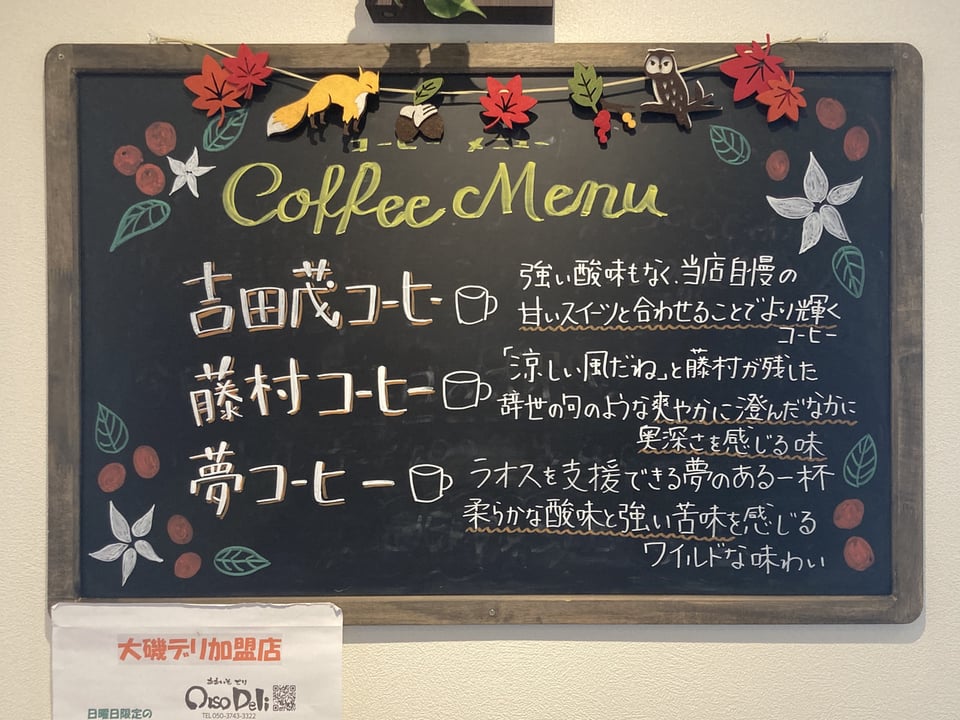 コーヒー メニュー
Coffee Menu
吉田茂コーヒー
強い酸味もなく、当店自慢の
甘いスイーツと合わせることでより輝く
コーヒー
藤村コーヒー
「涼しい風だね」と藤村が残した
辞世の句のような爽やかに澄んだなかに
奥深さを感じる味
夢コーヒー
ラオスを支援できる夢のある一杯
柔らかな酸味と強い苦味を感じる
ワイルドな味わい
大磯デリ加盟店
おおいそ でり
OisoDeli
TEL050-3743-3322
日曜日限定の